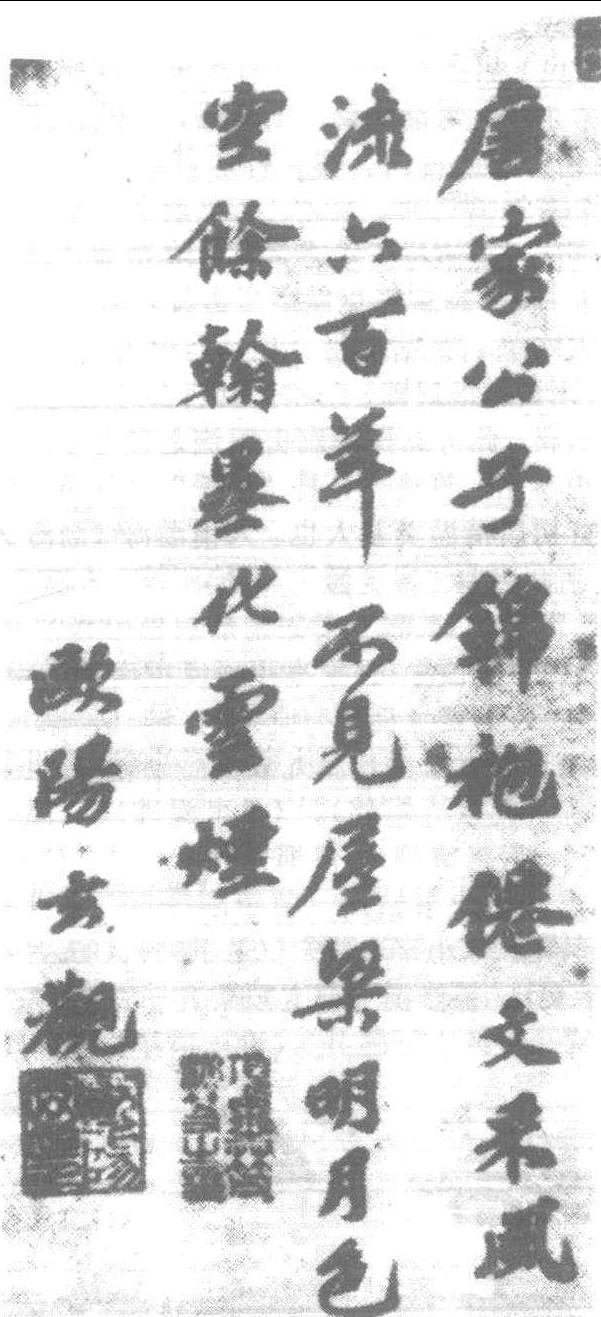 唐家公子錦袍僊文采風
流六百年不見屋梁明月色
空餘翰墨化雲煙
歐陽玄觀